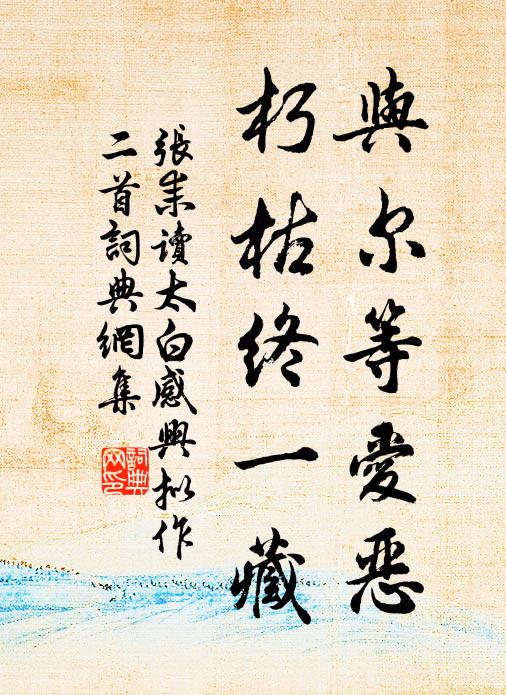 與尔等愛惡
朽枯終一藏
張耒讀太白感興拟作
二首詞典網集
詞典网印